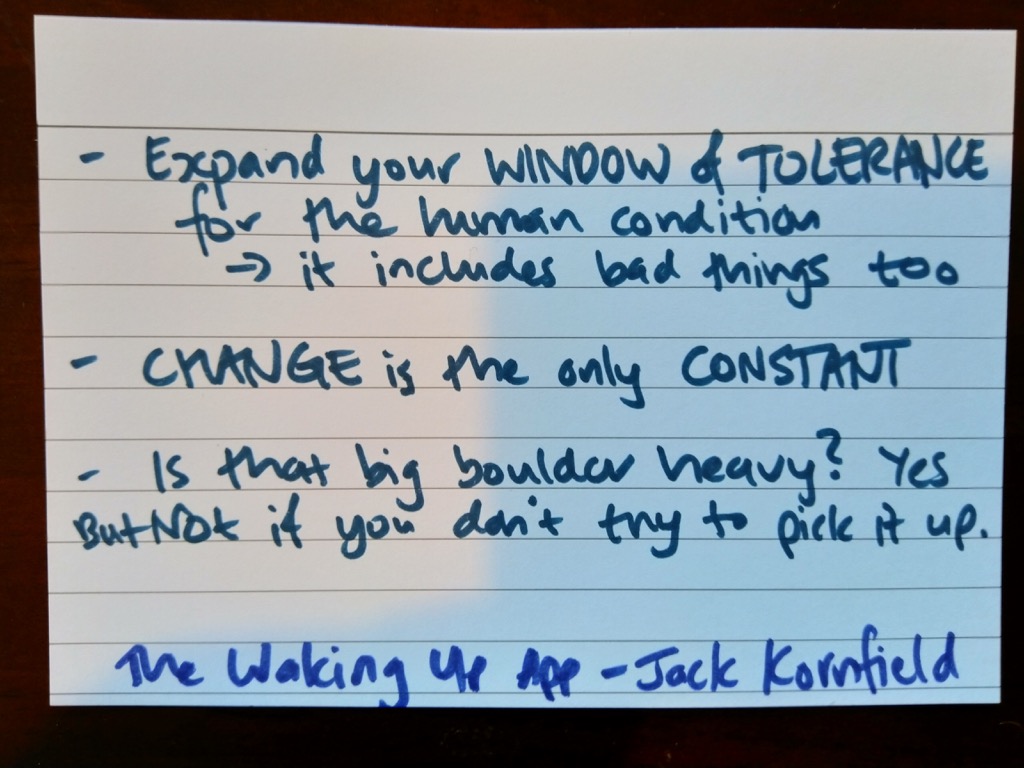 - Expand your WINDOW of TOLERANCE
for the human condition
→ it includes bad things too
- CHANGE is the only CONSTANT
- Is that big boulder heavy? Yes
But Not if you don't try to pick it up.
The Waking Up App - Jack Kornfield